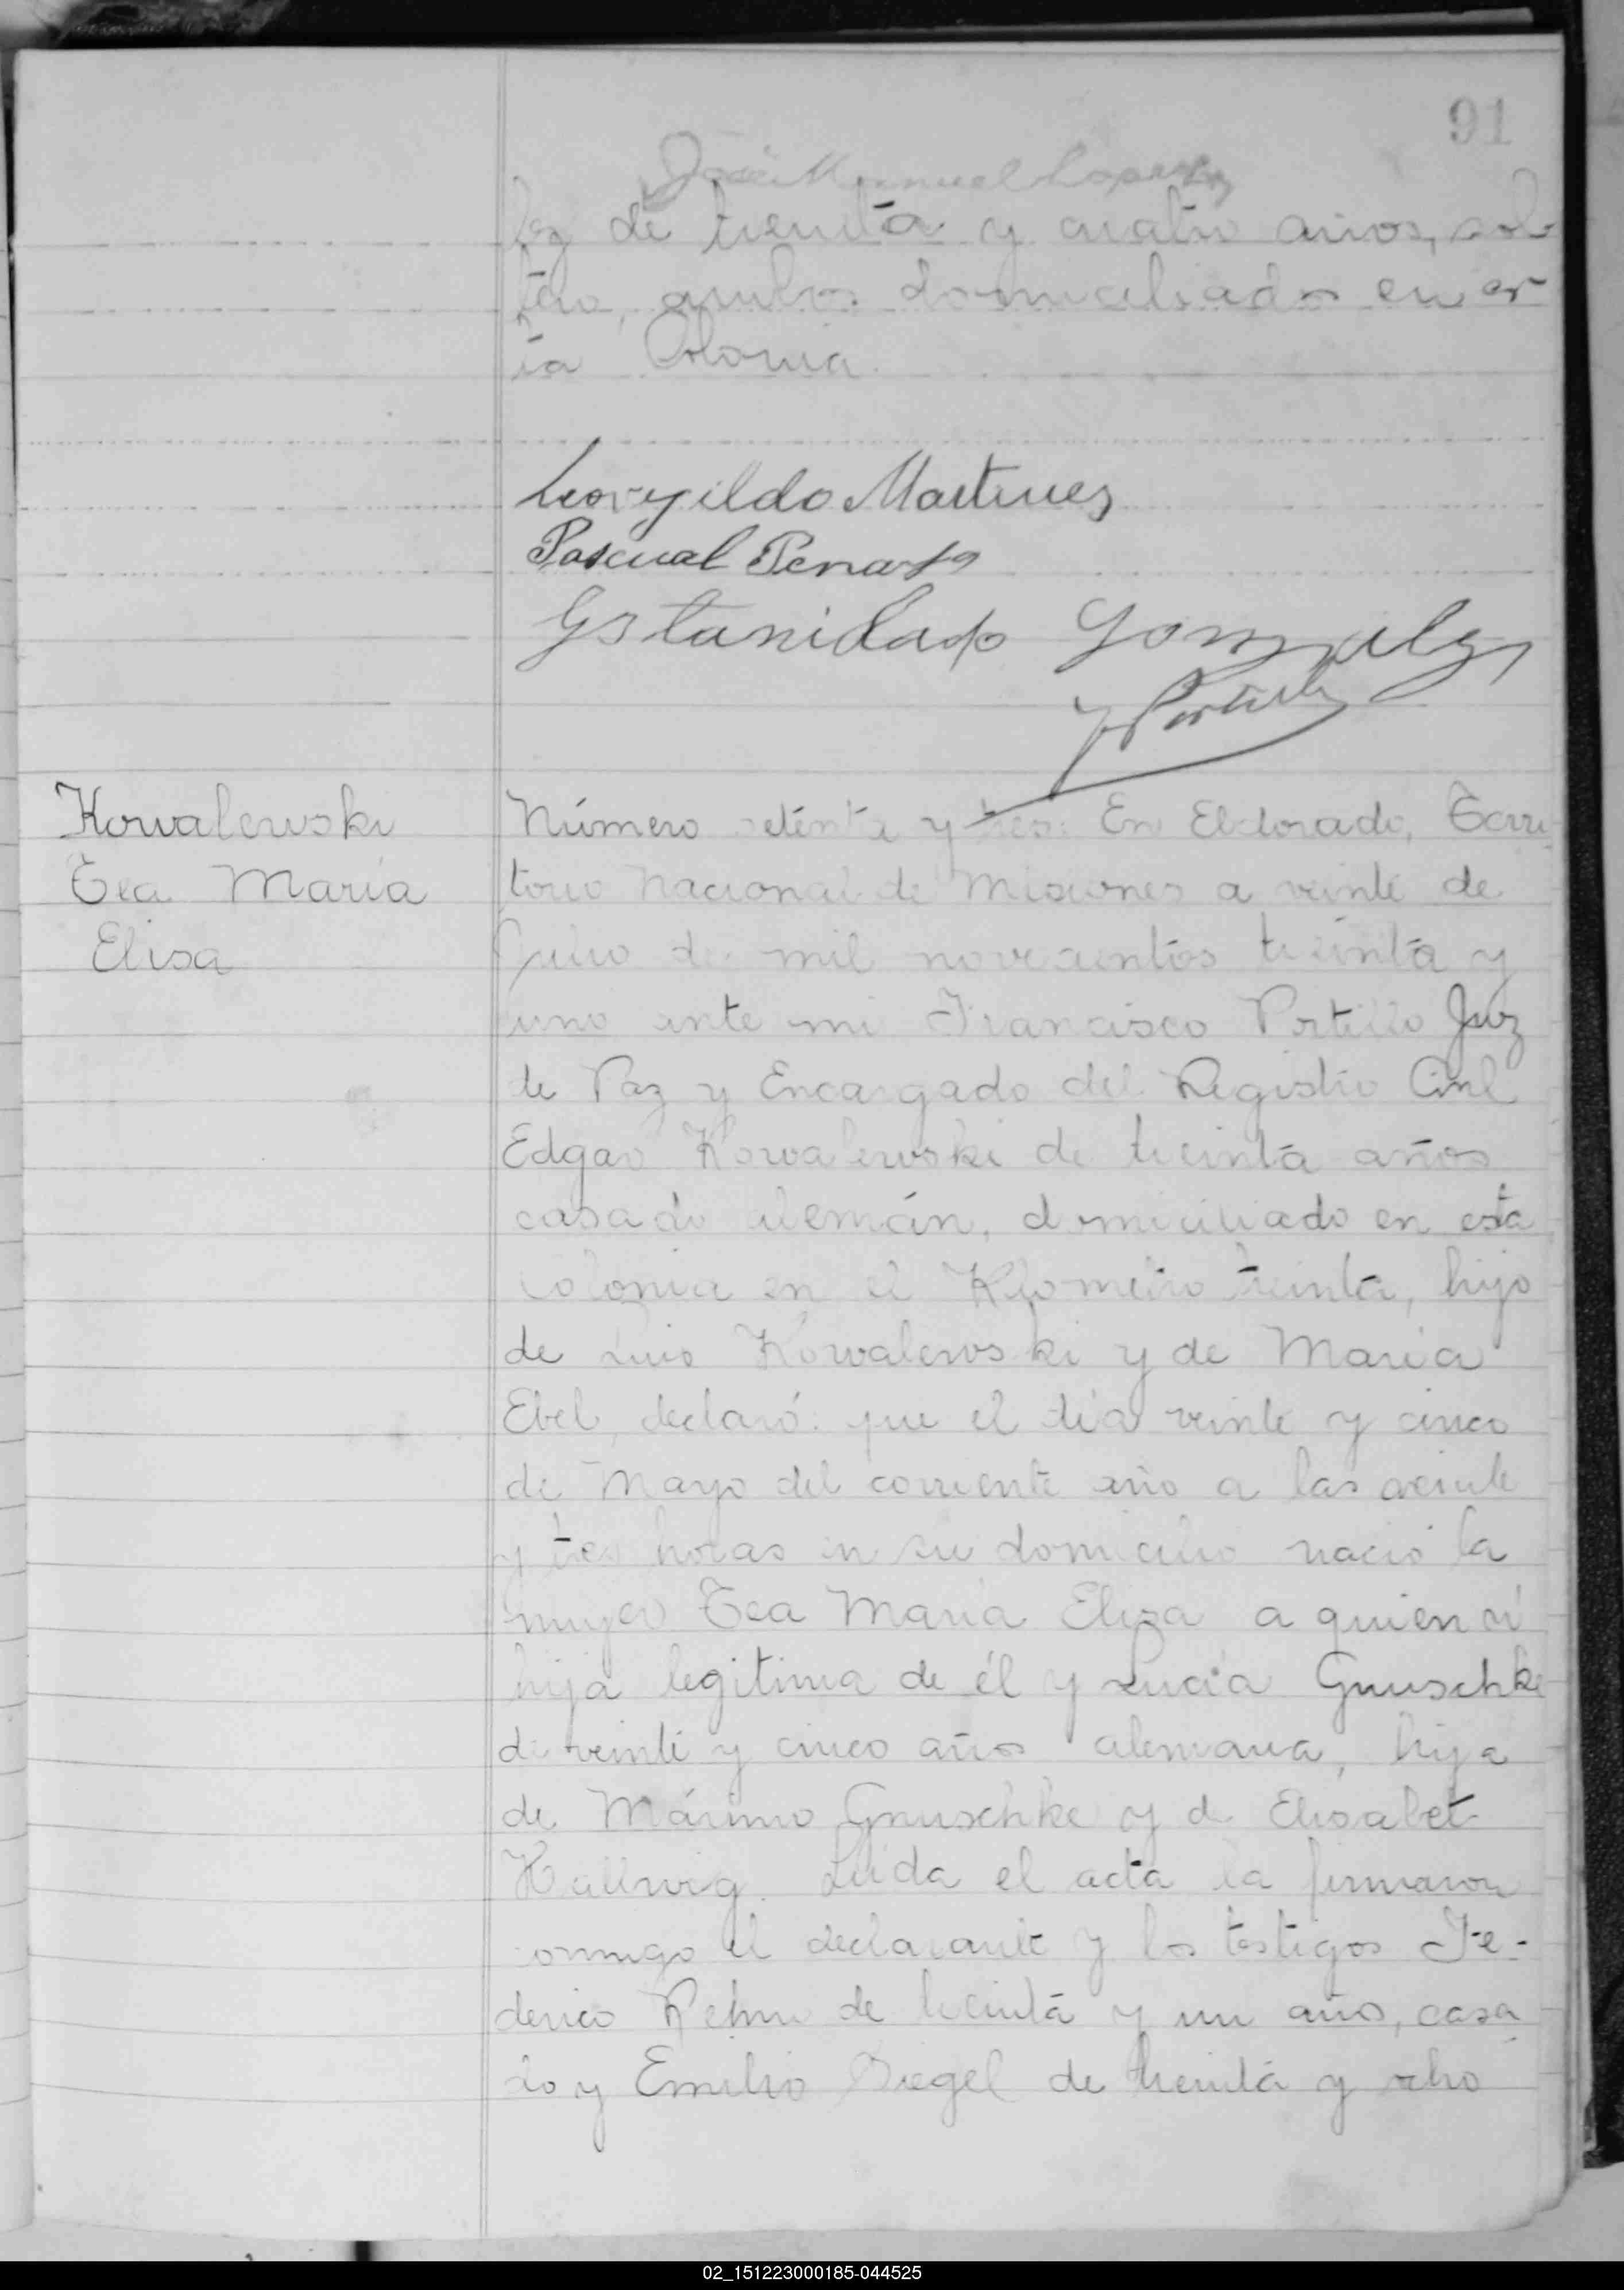 91
José Manuel Lopez
pez de treinta y cuatro años, sol-
tero, ambos domiciliados en es-
ta Colonia.
Leovyildo Martines
Pascual
Gonzalez
Portillo
Kowalewski
Tea María
Elisa
Número setenta y tres: En Eldorado, Terri-
torio Nacional de Misiones a veinte de
Julio de mil novecientos treinta y
uno ante mi Francisco Portillo Juez
de Paz y Encargado del Registro Civil
Edgar Kowalewski de treinta años
casado alemán, domiciliado en esta
colonia en el Kilometro treinta, hijo
de Luis Kowalewski y de Maria
Ebel, declaró: que el día veinte y cinco
de Mayo del corriente año a las veinte
y tres horas en su domicilio nació la
mujer Tea María Elisa a quien ví
hija legitima de él y Lucía Gnuschke
de veinte y cinco años alemana, hija
de Máximo Gnuschke y de Elisabet
Hallwig. Leida el acta la firmaron
conmigo el declarante y los testigos Fe-
derico Rehm de treinta y un años, casa
do y Emilio Siegel de treinta y ocho
02_151223000185-044525